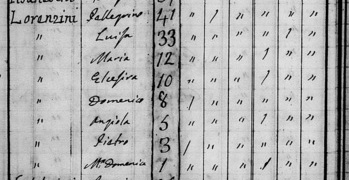 Lorenzini Pellegrino 41 " 1 " " " "
" Luisa 33 " " " " 1 "
" Maria 12 " " " 1 " "
" 10 " " " 1 " "
" Domenico 8 1 " " " " "
" Angiola 5 " " " 1 " "
" Pietro 3 1 " " " " "
" Ma Domenica 1 " " " 1 " "